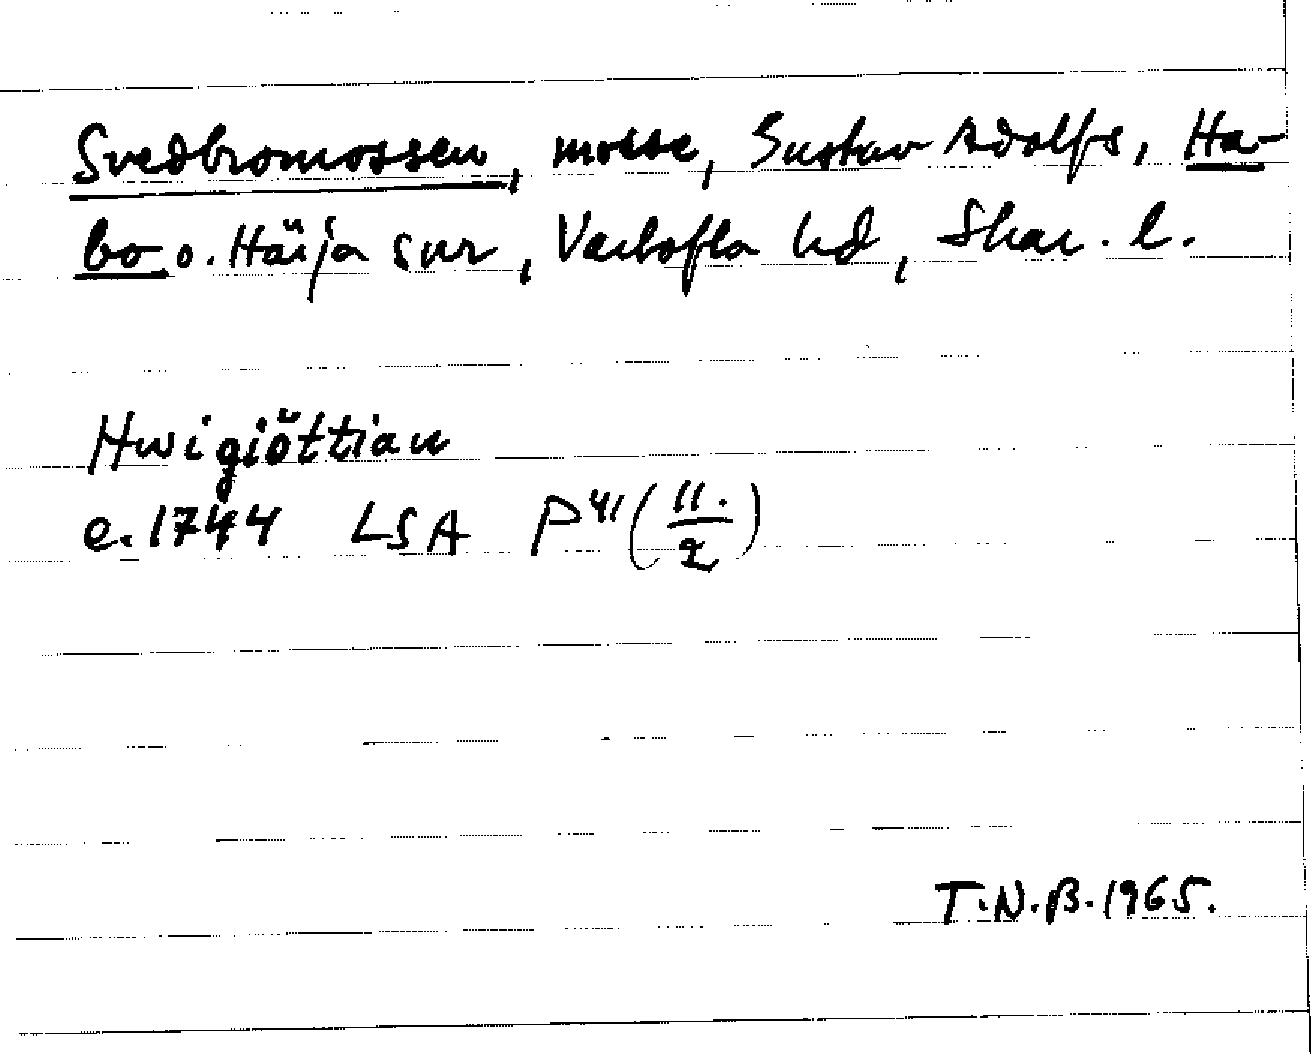 Svedbromossen, mosse, Gustav Adolfs, Ha-
bo o. Härja snr, Vartofta hd, Skar. l.
Hwigiöttian
e. 1744 LSA P 41 (11./2)
T.N.B. 1965.